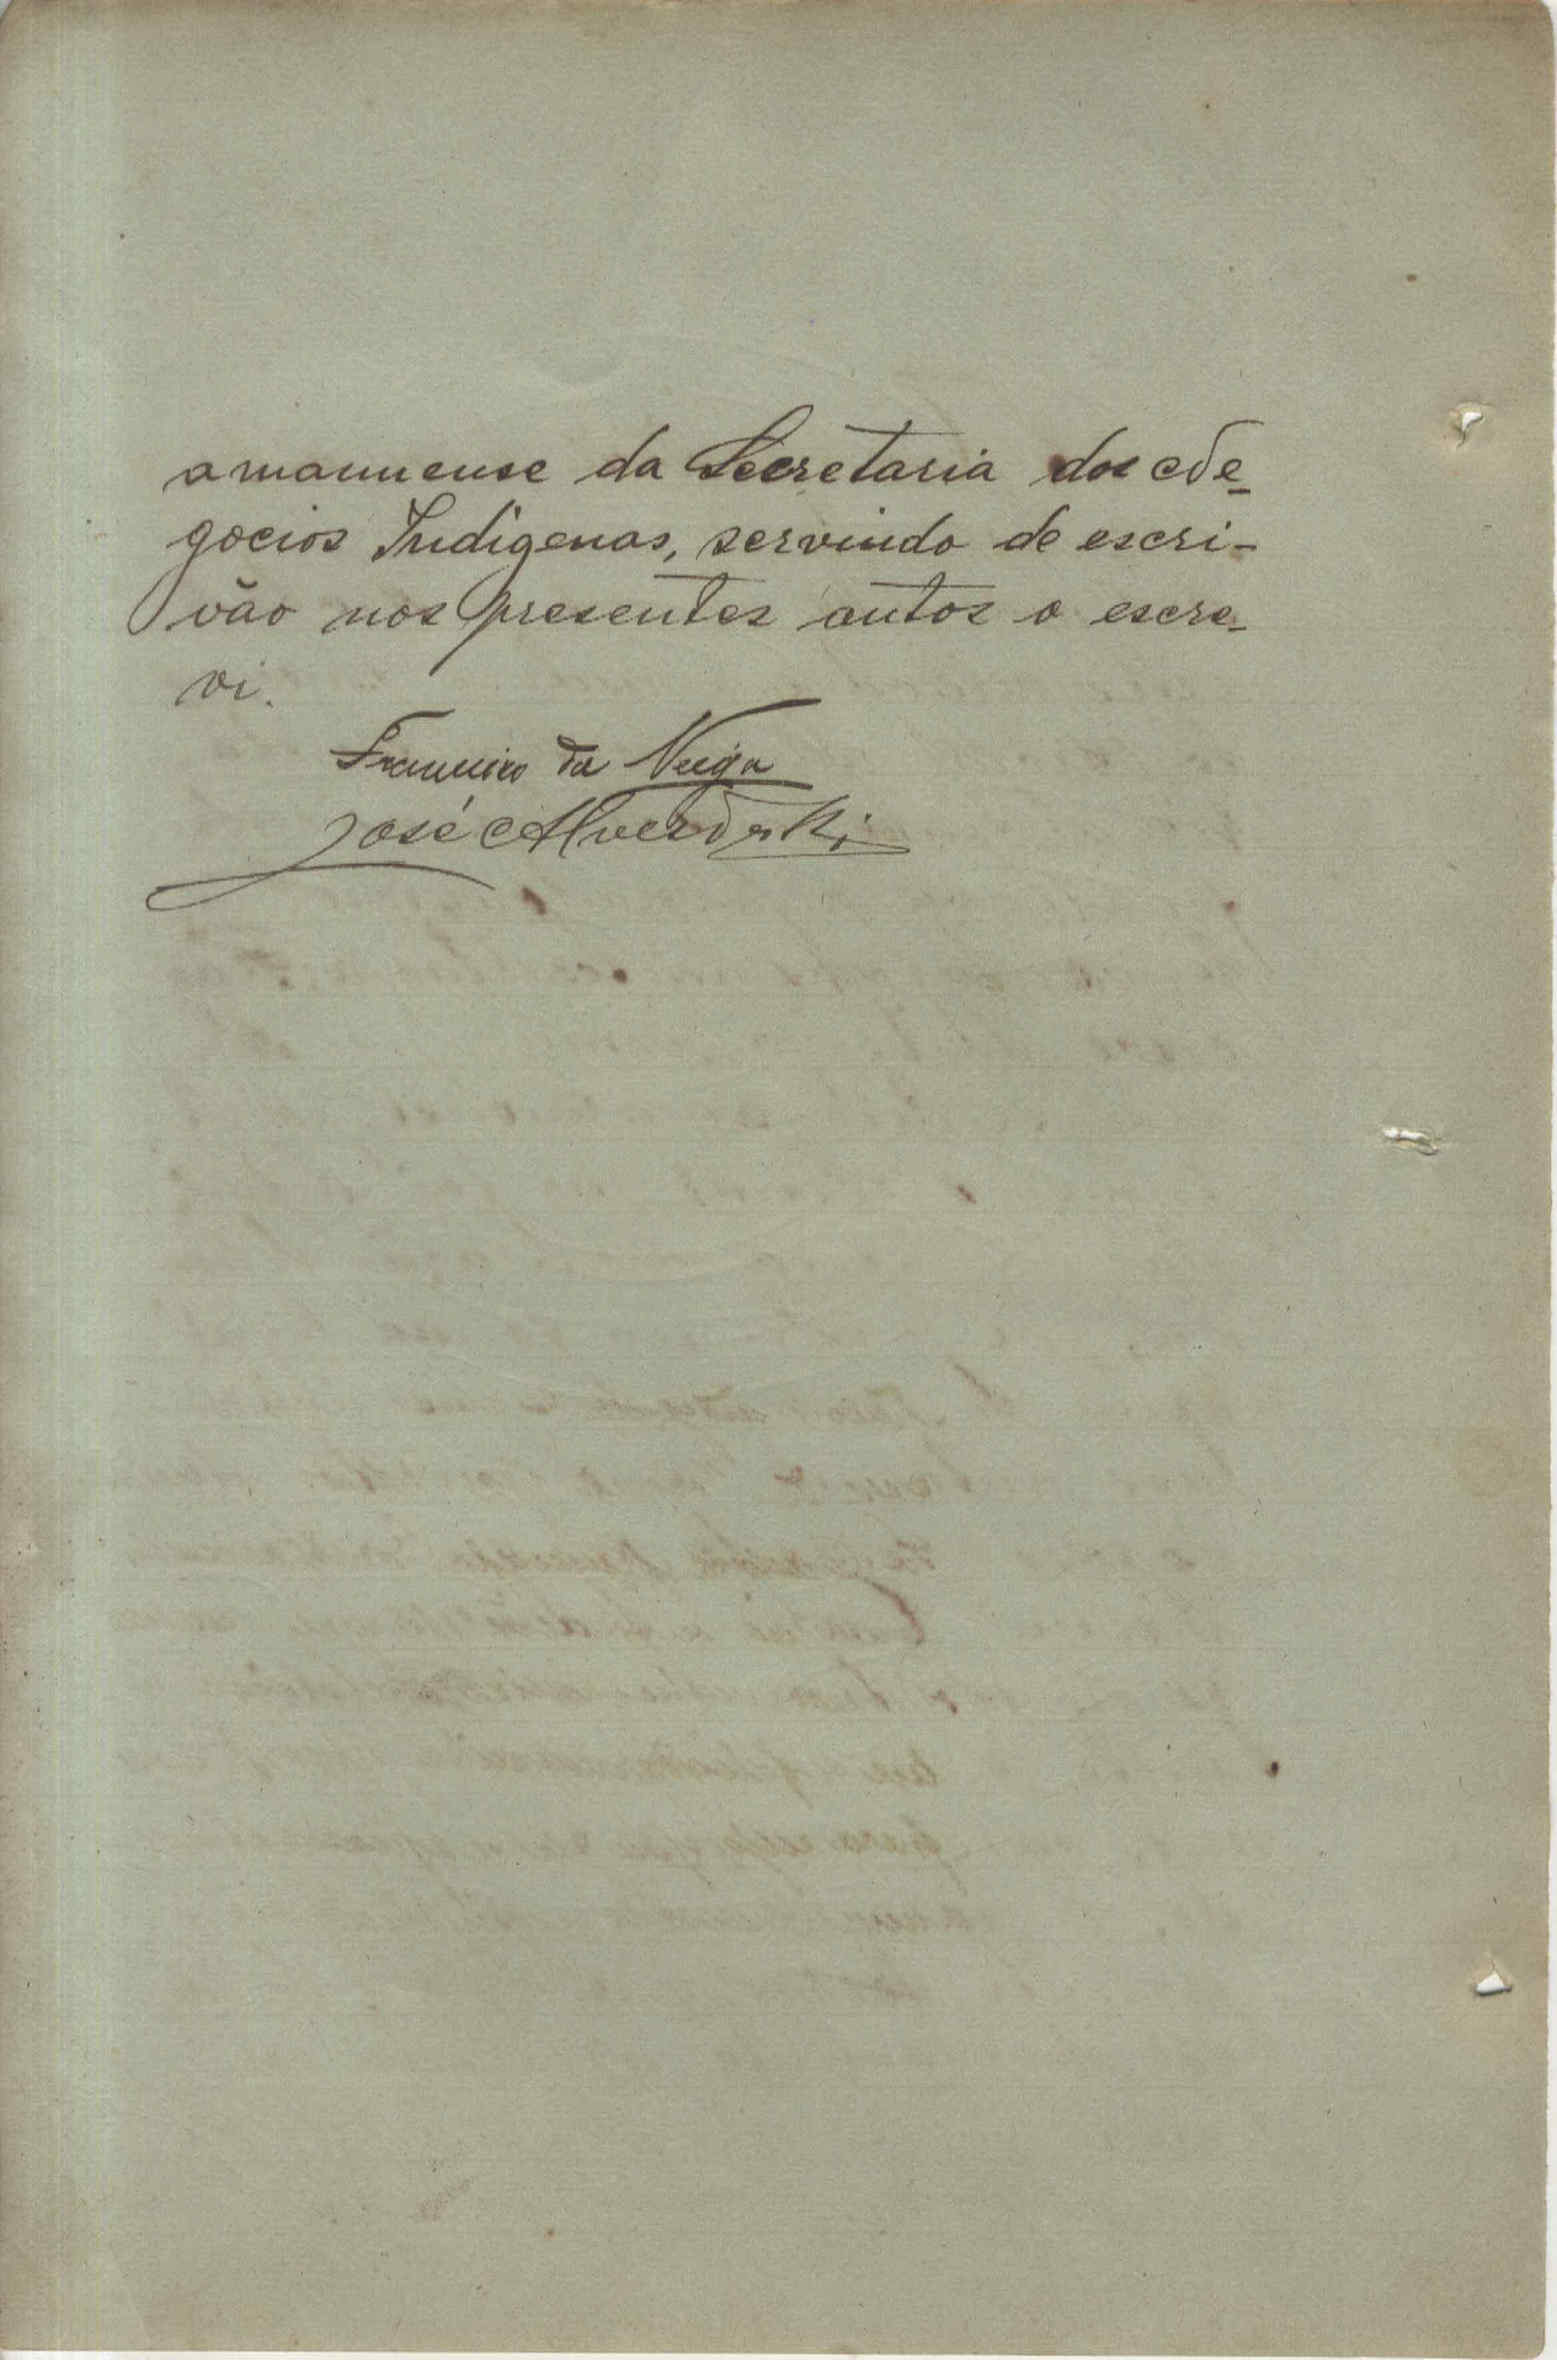 amanuense da Secretaria dos Ne-
gocios Indigenas, servindo de escri-
vão nos presentes autos o escre-
vi.
Francisco da Veiga
José Alves d